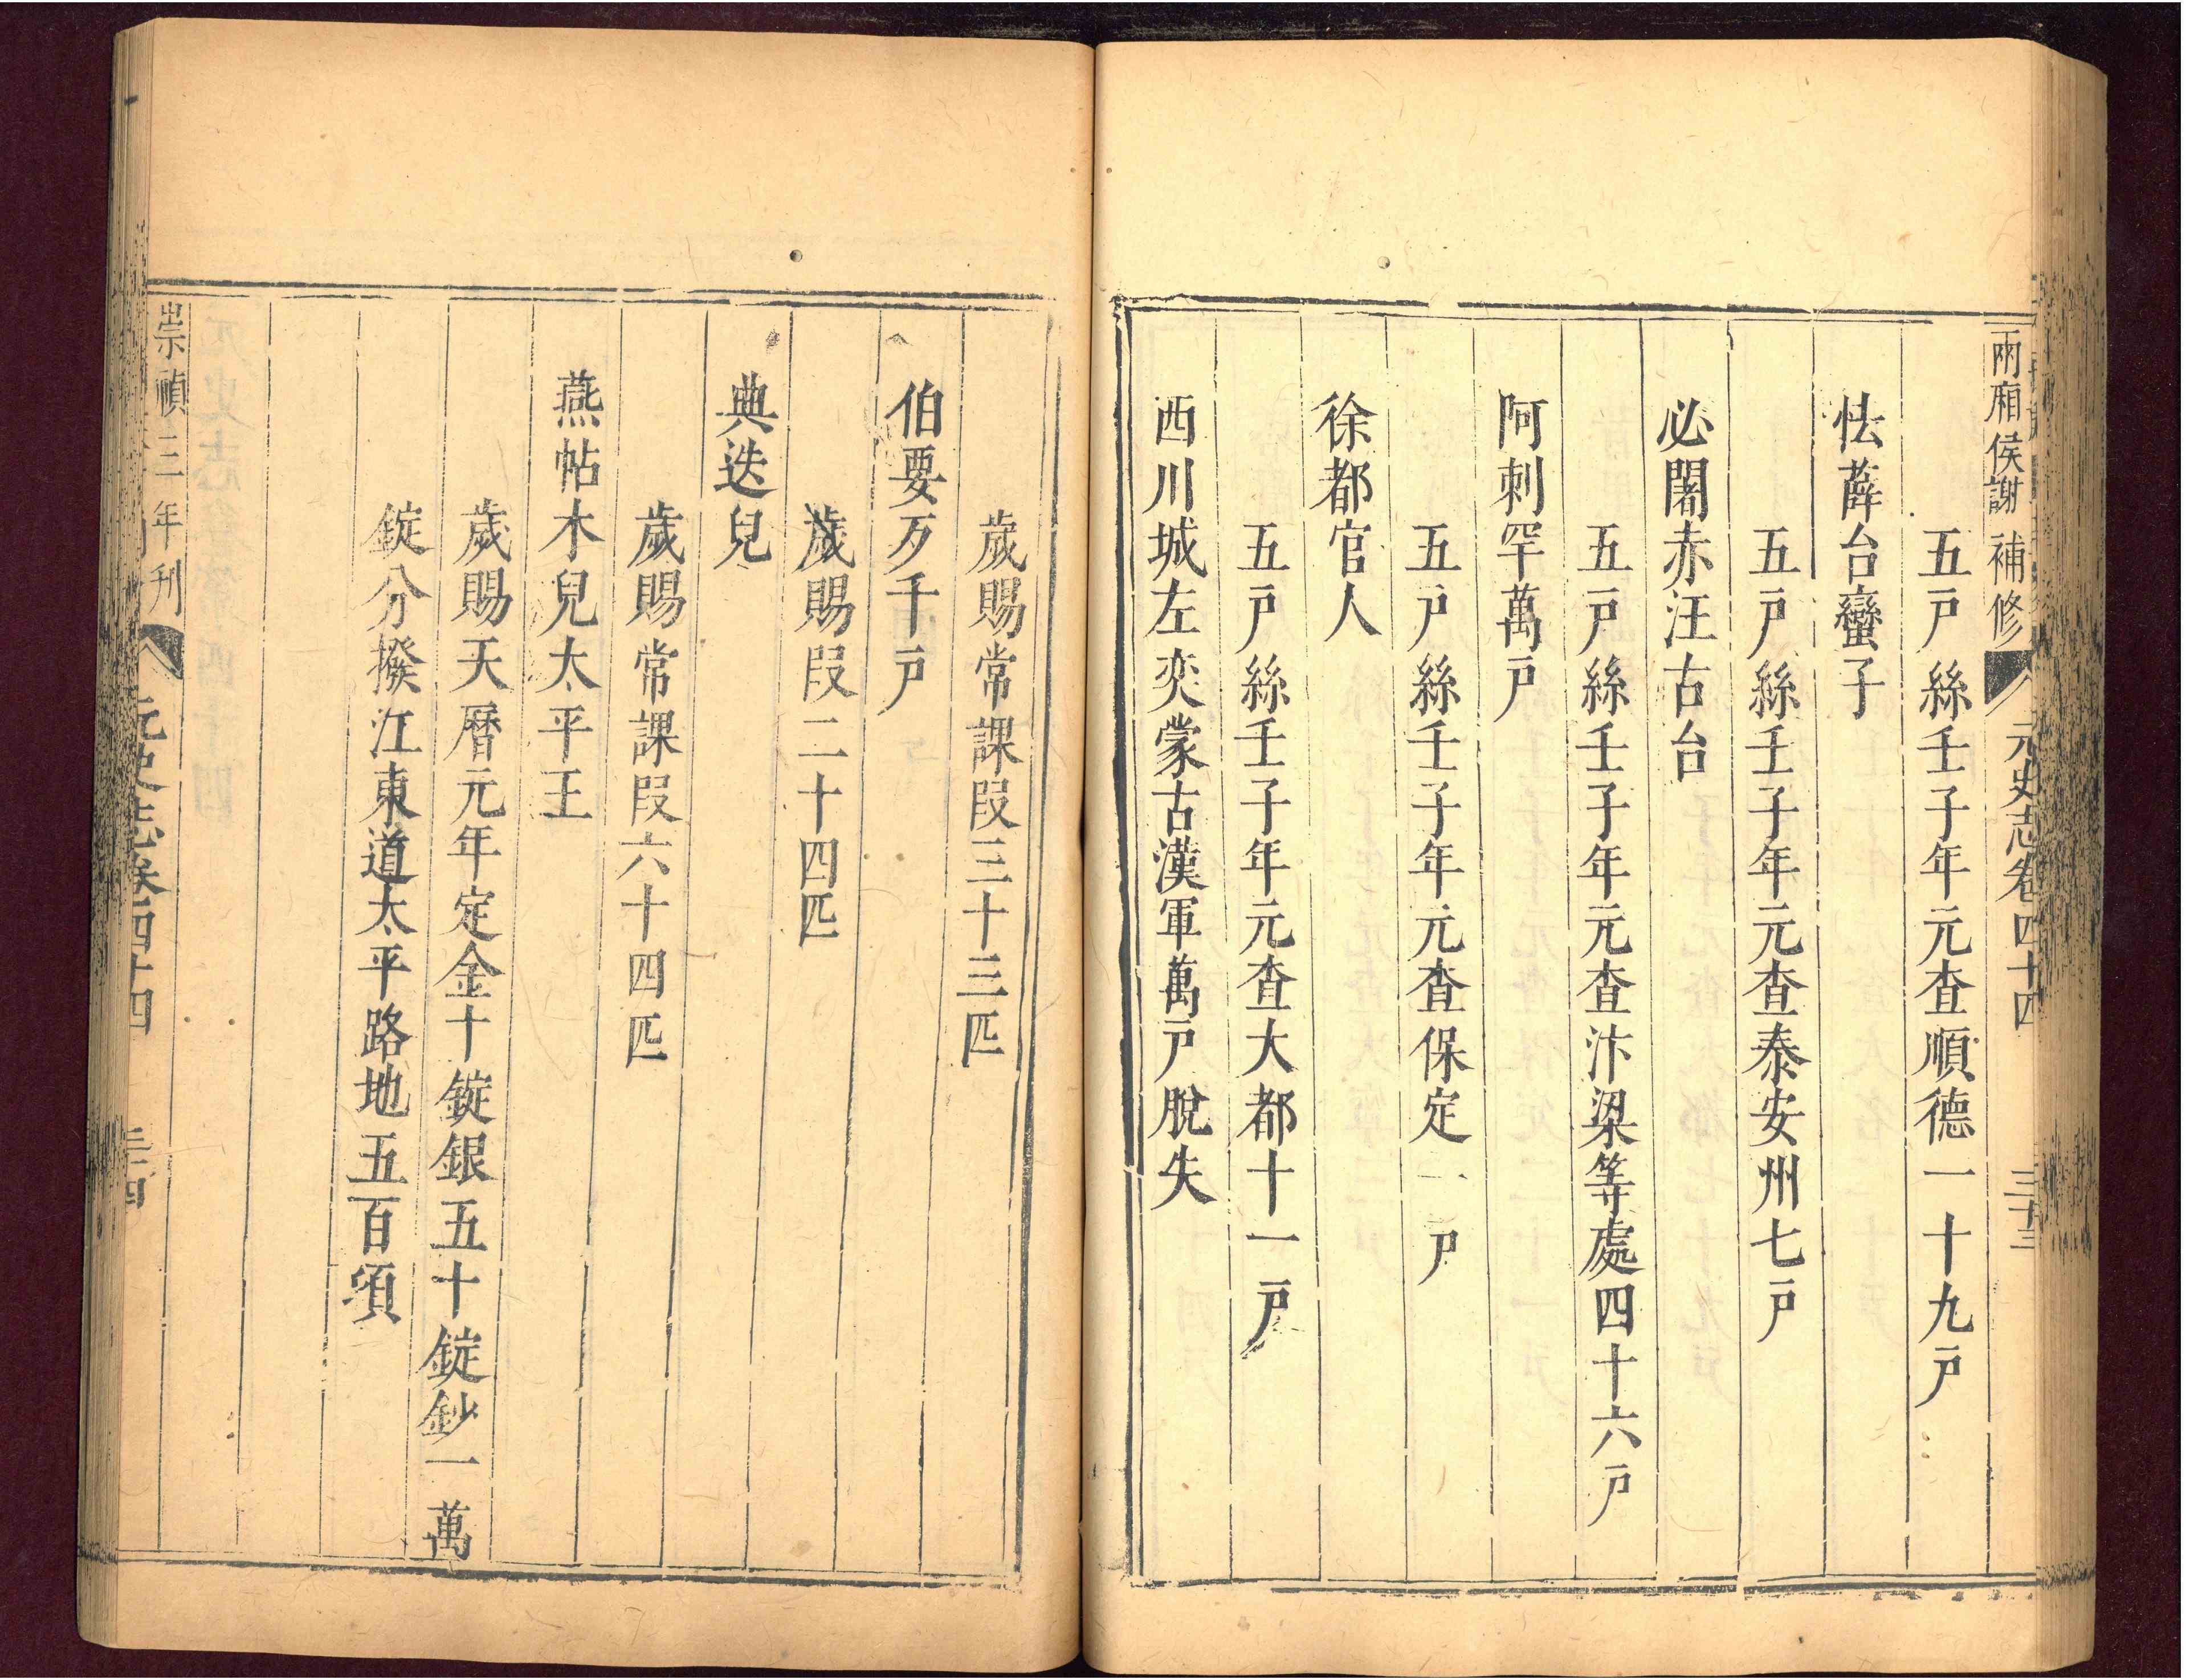 兩廂侯謝補修
元史志卷四十四
三十三
五戶絲壬子年元查順德一十九戶
怯薛台蠻子
五戶絲壬子年元查泰安州七戶
必闍赤汪古台
五戶絲壬子年元查汴梁等處四十六戶
阿刺罕萬戶
五戶絲壬子年元查保定一戶
徐都官人
五戶絲壬子年元查大都十一戶
西川城左奕蒙古漢軍萬戶脫失
歲賜常課段三十三匹
伯要歹千戶
歲賜段二十四匹
典迭兒
歲賜常課段六十四匹
燕帖木兒太平王
歲賜天曆元年定金十錠銀五十錠鈔一萬
錠分撥江東道太平路地五百頃
崇禎三年刊
元史志卷四十四
三十四